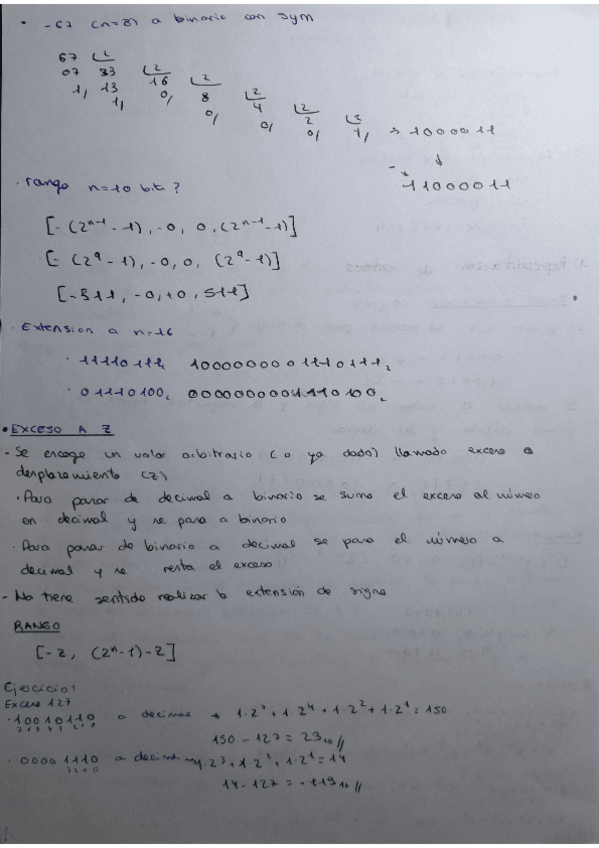 · -67 (n=8) a binario con sym
67 L2
07 33 L2
1, 13 16 L2
1, 0, 8 L2
0, 4 L2
0, 2 L2
0, 1, → 1000011
↓
- → 11000011
· rango n=10 bit?
[-(2ⁿ⁻¹-1), -0, 0, (2ⁿ⁻¹-1)]
·[-(2⁹-1), -0, 0, (2⁹-1)]
[-511, -0, +0, 511]
· Extension a n=16
· 11110111₂ 1000000001110111₂
· 01110100₂ 0000000001110100₂
• EXCESO A Z
- Se encoge un valor arbitrario (o ya dado) llamado exceso o
desplazamiento (Z)
· Para pasar de decimal a binario se suma el exceso al número
en decimal y se pasa a binario
· Para pasar de binario a decimal se pasa el número a
decimal y se resta el exceso
- No tiene sentido realizar la extensión de signo
RANGO
[-Z, (2ⁿ-1)-Z]
Ejercicio:
Exceso 127
· 10010110 a decimal → 1·2⁷+1·2⁴+1·2²+1·2¹=150
7 6 5 4 3 2 1 0
150-127=23₁₀//
· 00001110 a decimal → 1·2³+1·2²+1·2¹=14
3 2 1 0
14-127=-113₁₀//